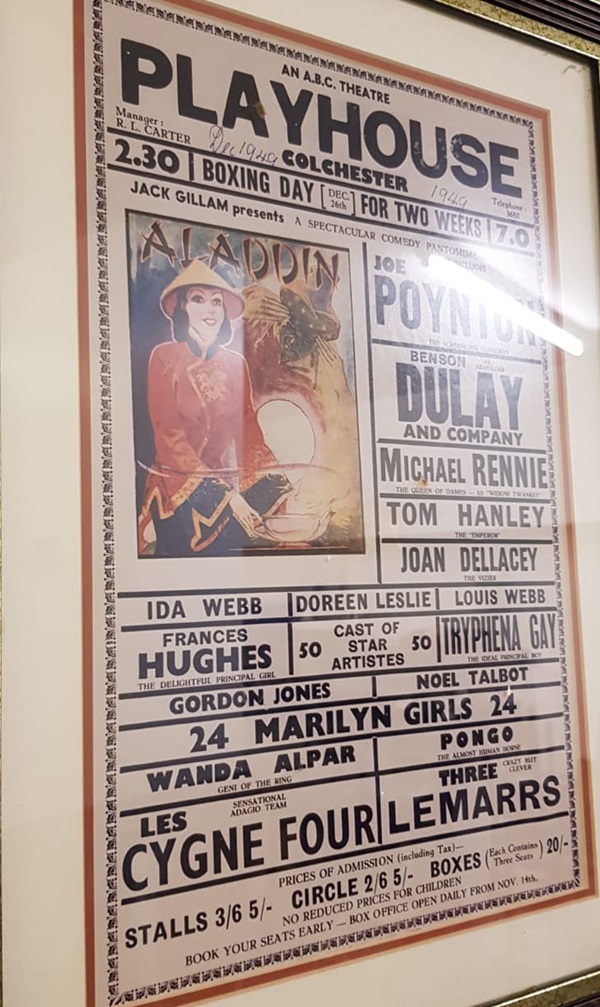 AN A.B.C. THEATRE
PLAYHOUSE
Manager:
R. L. CARTER
Dec 1949
COLCHESTER
1949
Telephone:
2.30 BOXING DAY [DEC. 26th] FOR TWO WEEKS 7.0
JACK GILLAM presents A SPECTACULAR COMEDY PANTOMIME
ALADDIN
INCLUDES
JOE
POYNTON
BENSON
DULAY
AND COMPANY
MICHAEL RENNIE
THE QUEEN OF DAMES — AS "WIDOW TWANKEY"
TOM HANLEY
THE "EMPEROR"
JOAN DELLACEY
THE VIZIER
IDA WEBB DOREEN LESLIE LOUIS WEBB
FRANCES
HUGHES
THE DELIGHTFUL PRINCIPAL GIRL
50 CAST OF STAR ARTISTES 50
TRYPHENA GAY
THE IDEAL PRINCIPAL BOY
GORDON JONES NOEL TALBOT
24 MARILYN GIRLS 24
WANDA ALPAR
GENI OF THE RING
PONGO
THE ALMOST HUMAN HORSE
LES
SENSATIONAL
ADAGIO TEAM
CYGNE FOUR
THREE
CRAZY BUT
CLEVER
LEMARRS
PRICES OF ADMISSION (including Tax)—
STALLS 3/6 5/- CIRCLE 2/6 5/- BOXES (Each Contains Three Seats) 20/-
NO REDUCED PRICES FOR CHILDREN
BOOK YOUR SEATS EARLY — BOX OFFICE OPEN DAILY FROM NOV. 14th.